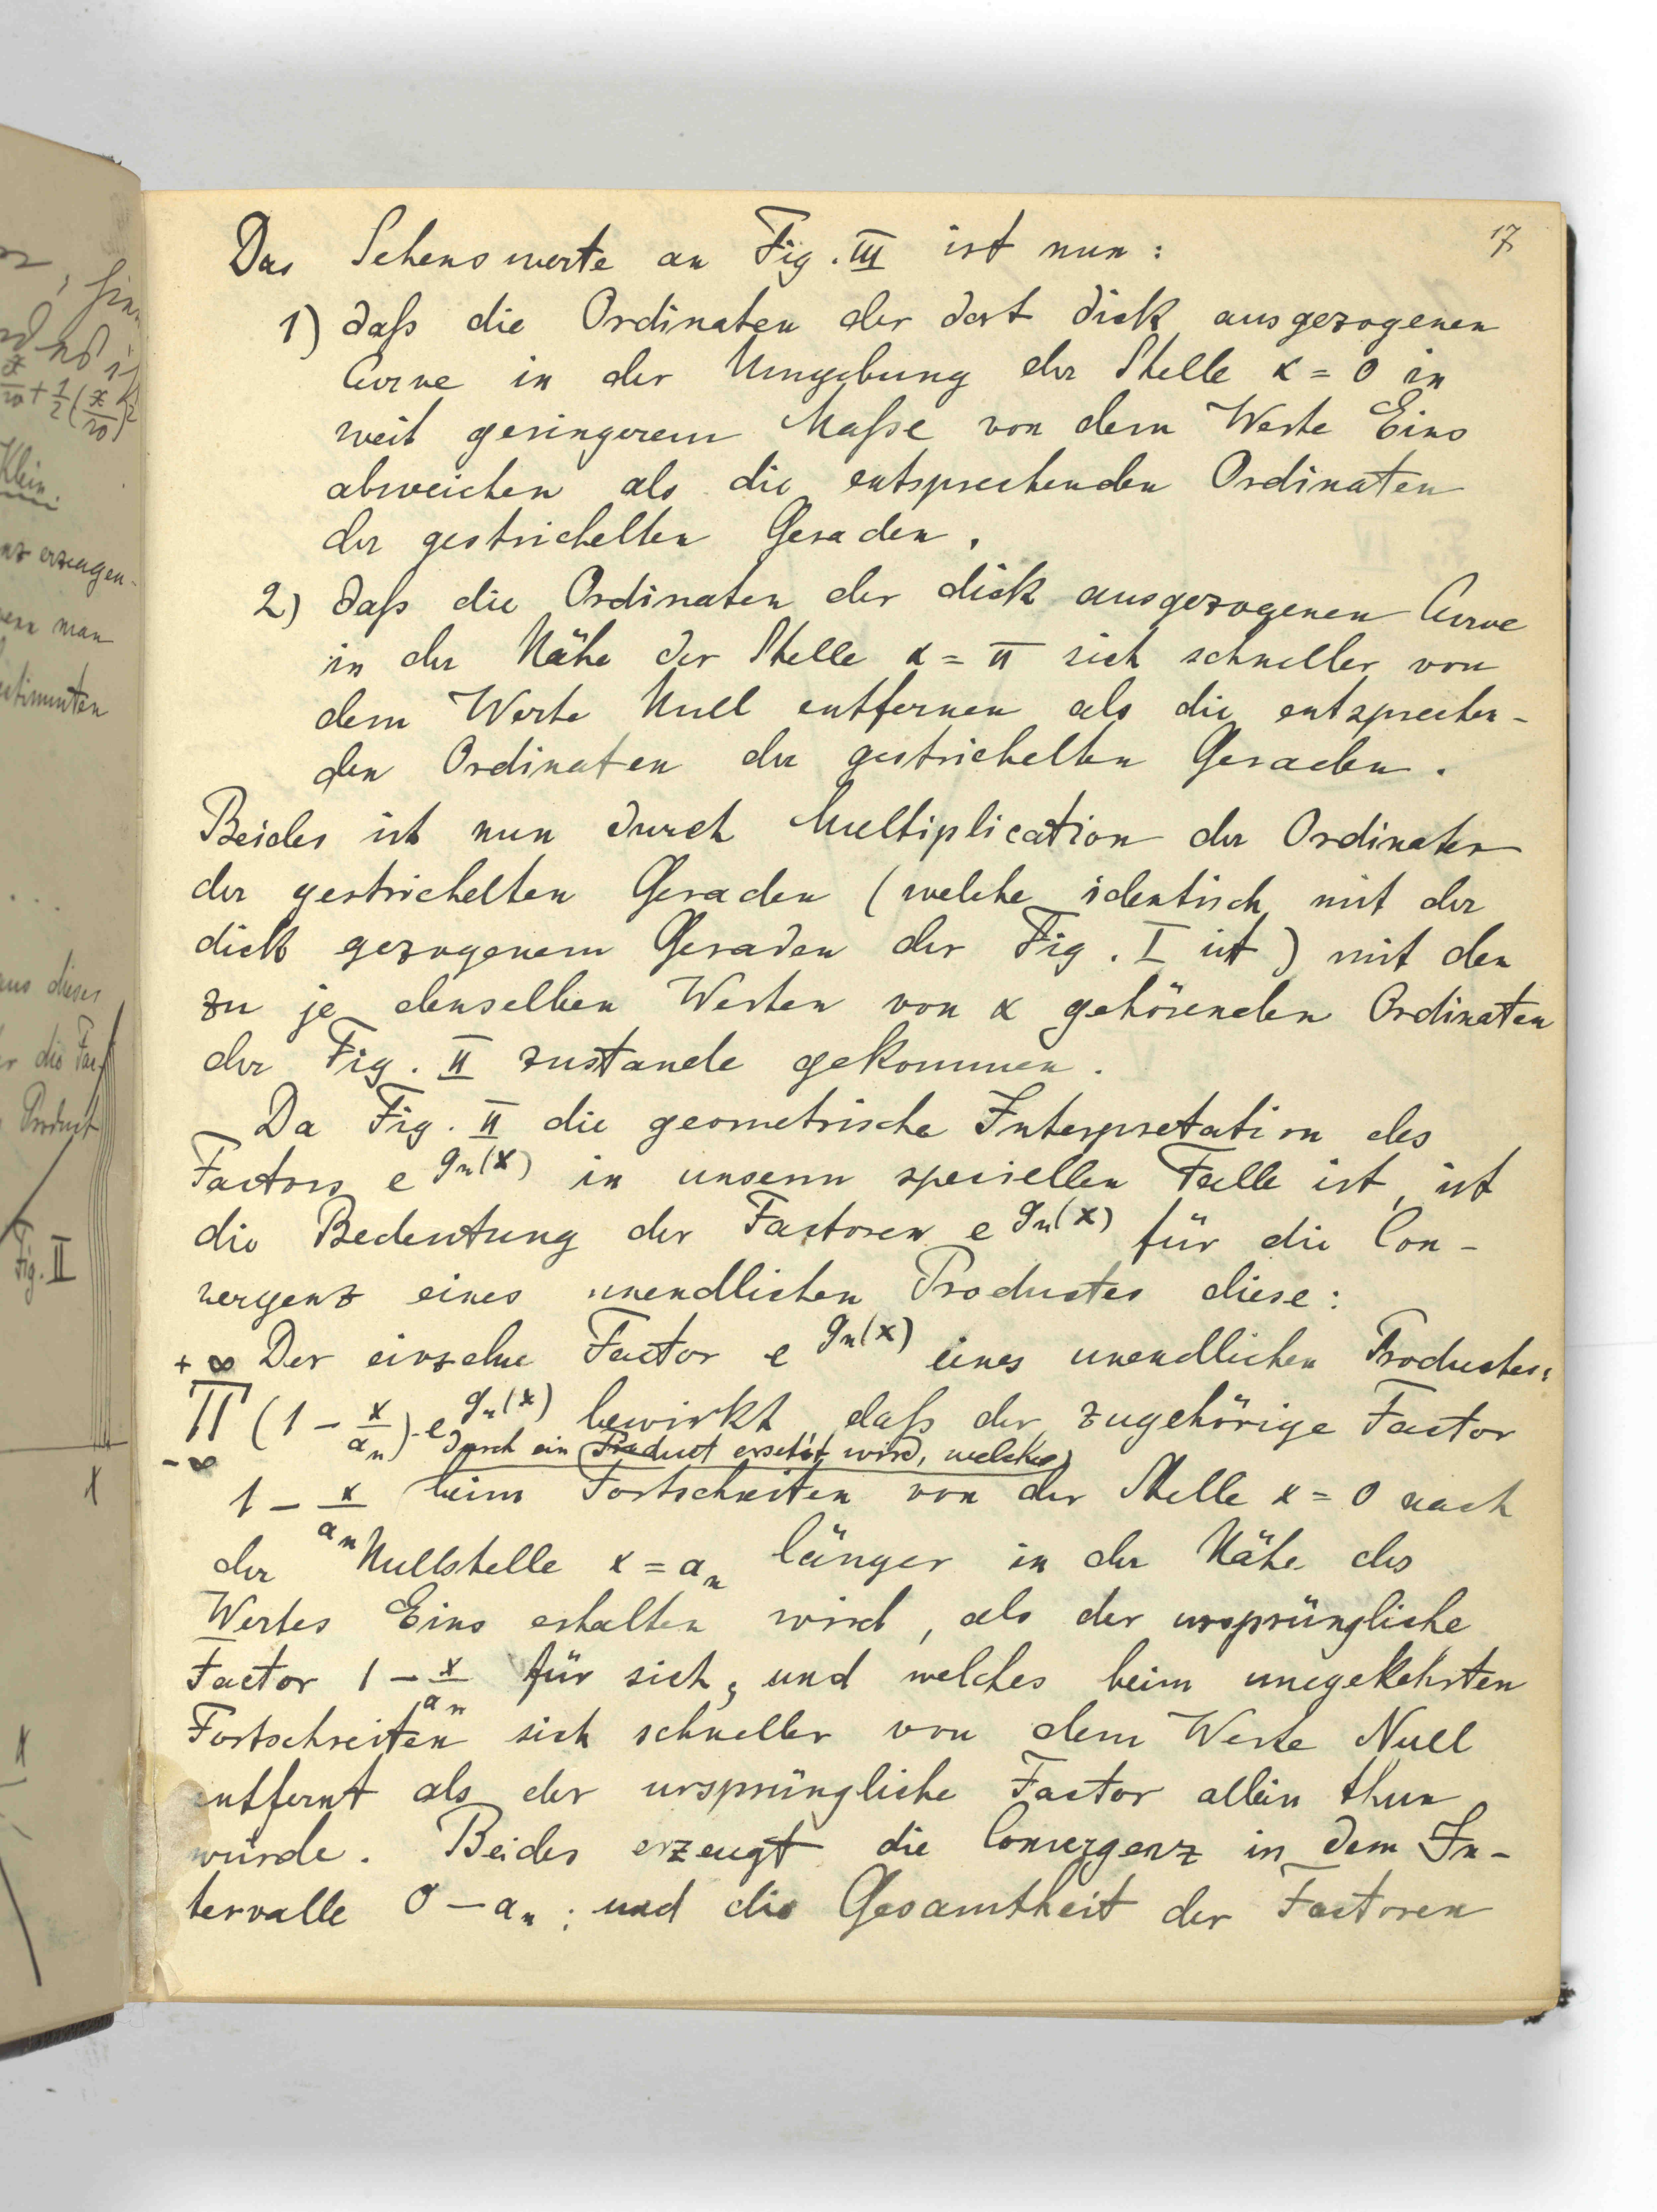 17
Das Sehenswerte an Fig. III ist nun:
1) daß die Ordinaten der dort dick ausgezogenen
Curve in der Umgebung der Stelle x = 0 in
weit geringerem Maße von dem Werte Eins
abweichen als die entsprechenden Ordinaten
der gestrichelten Geraden.
2) daß die Ordinaten der dick ausgezogenen Curve
in der Nähe der Stelle x = π sich schneller von
dem Werte Null entfernen als die entsprechen-
den Ordinaten der gestrichelten Geraden.
Beides ist nun durch Multiplication der Ordinaten
der gestrichelten Geraden (welche identisch mit der
dick gezogenem Geraden der Fig. I ist) mit den
zu je denselben Werten von x gehörenden Ordinaten
der Fig. II zustande gekommen.
Da Fig. II die geometrische Interpretation des
Factors e^{g_n(x)} in unserm speciellen Falle ist, ist
die Bedeutung der Factoren e^{g_n(x)} für die Con-
vergenz eines unendlichen Productes diese:
Der einzelne Factor e^{g_n(x)} eines unendlichen Productes:
+∞ ∏ -∞ (1 - x/a_n) · e^{g_n(x)} bewirkt, daß der zugehörige Factor
durch ein Product ersetzt wird, welches
1 - x/a_n beim Fortschreiten von der Stelle x = 0 nach
der Nullstelle x = a_n länger in der Nähe des
Wertes Eins erhalten wird, als der ursprüngliche
Factor 1 - x/a_n für sich, und welches beim umgekehrten
Fortschreiten sich schneller von dem Werte Null
entfernt als der ursprüngliche Factor allein thun
würde. Beides erzeugt die Convergenz in dem In-
tervalle 0 — a_n; und die Gesamtheit der Factoren
Klein.
erzeugen-
man
estimmten
aus dieser
die Fac-
Product
Fig. II
x
x